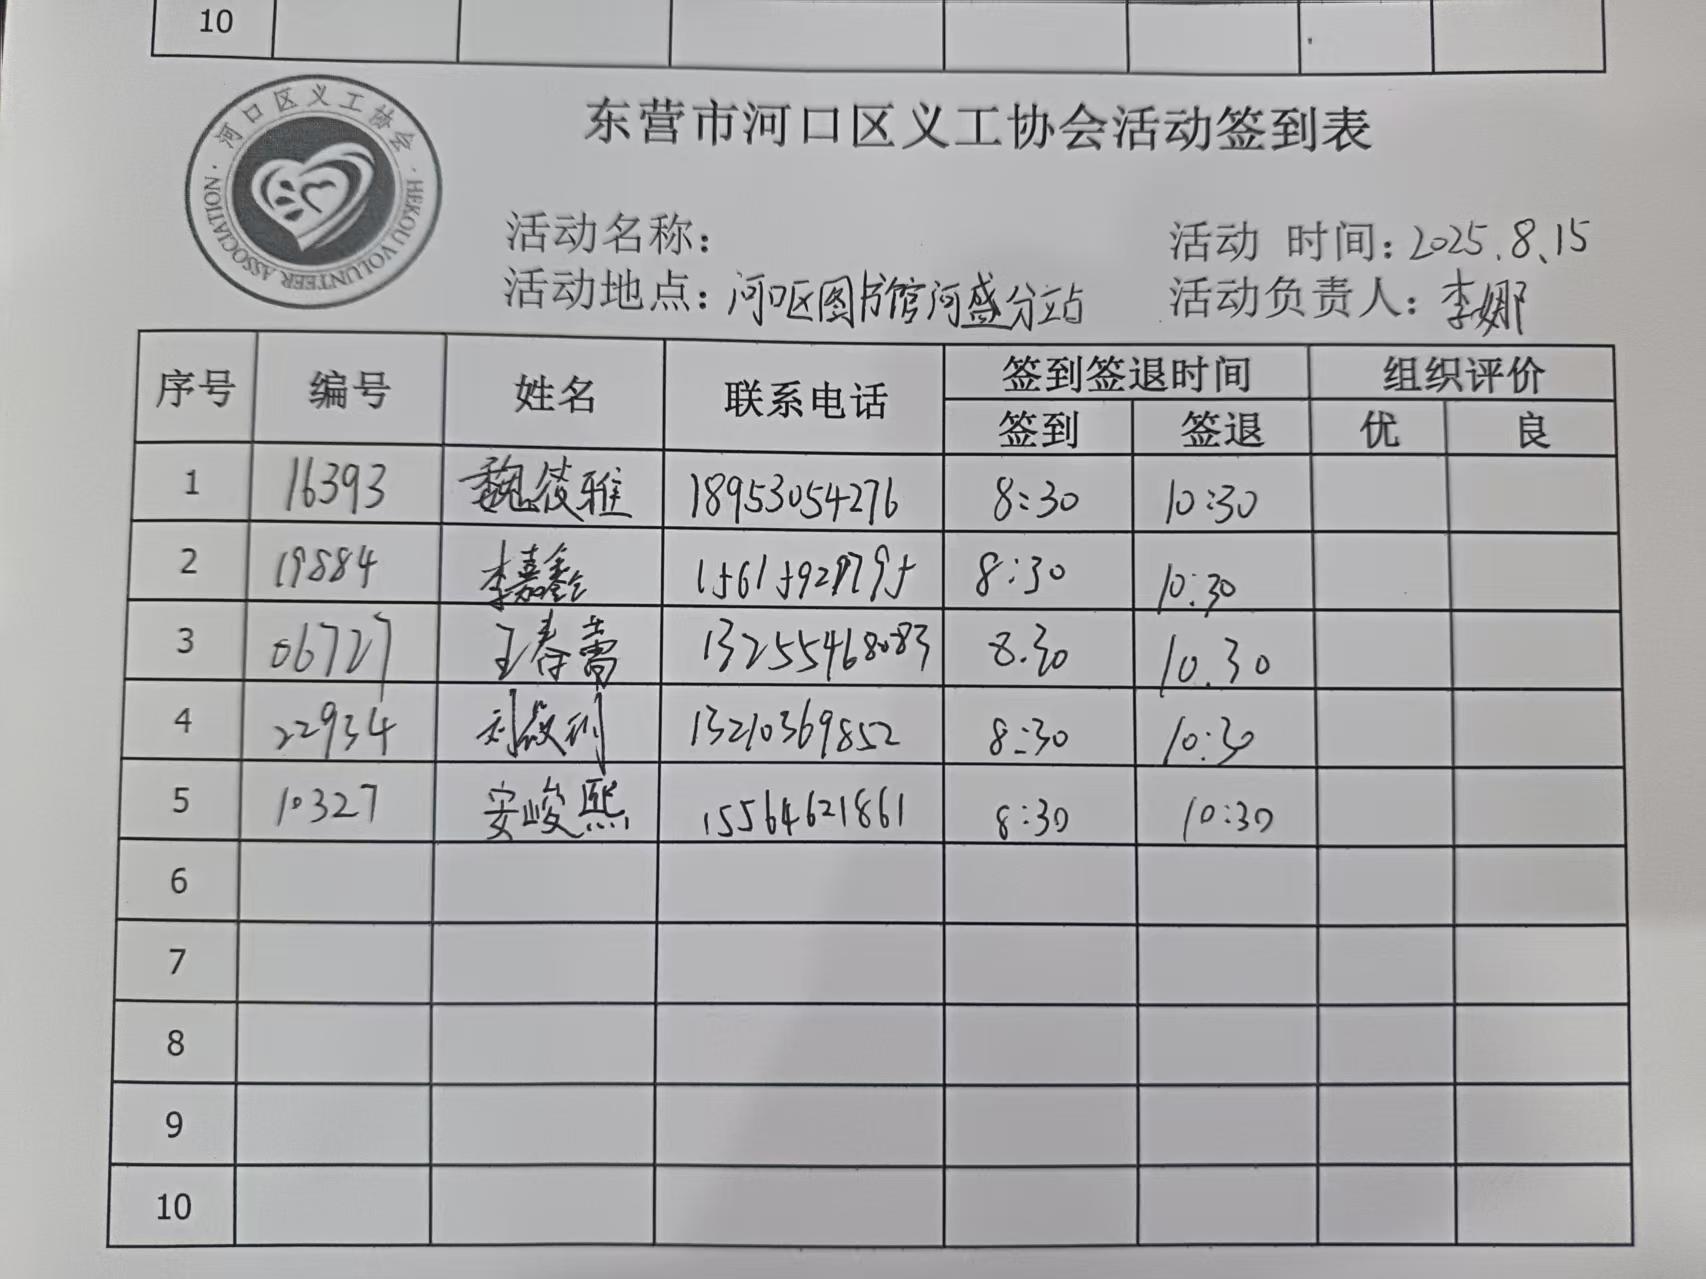 10
河口区义工协会
HEKOU VOLUNTEER ASSOCIATION
东营市河口区义工协会活动签到表
活动名称：
活动 时间：2025.8.15
活动地点：河口区图书馆河盛分站
活动负责人：李娜
序号 编号 姓名 联系电话 签到签退时间 组织评价
签到 签退 优 良
1 16393 魏筱雅 18953054276 8:30 10:30
2 19884 李嘉鑫 15615927795 8:30 10:30
3 06727 王春蕾 13255468083 8.30 10.30
4 22934 刘 13210369852 8:30 10:30
5 10327 安峻熙 15564621861 8:30 10:30
6
7
8
9
10